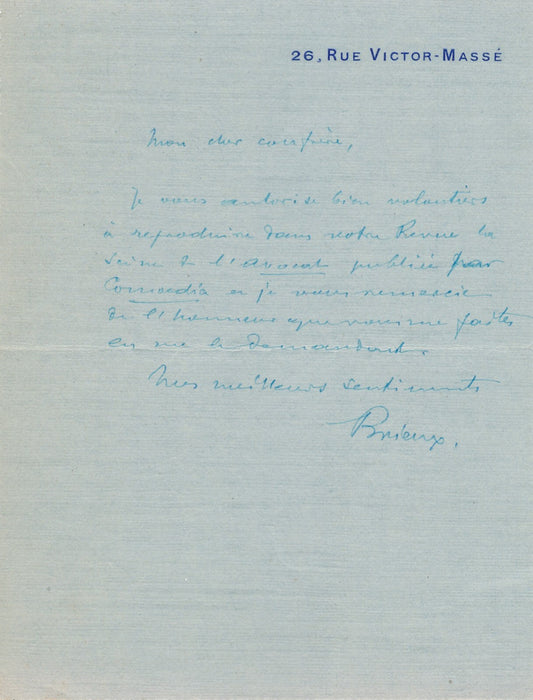 26, RUE VICTOR-MASSÉ
Mon cher confrère,
Je vous autorise bien volontiers
à reproduire dans votre Revue la
scène de l'Avocat publiée par
Comoedia et je vous remercie
de l'honneur que vous me faites
en me le demandant.
Mes meilleurs sentiments
Brieux.